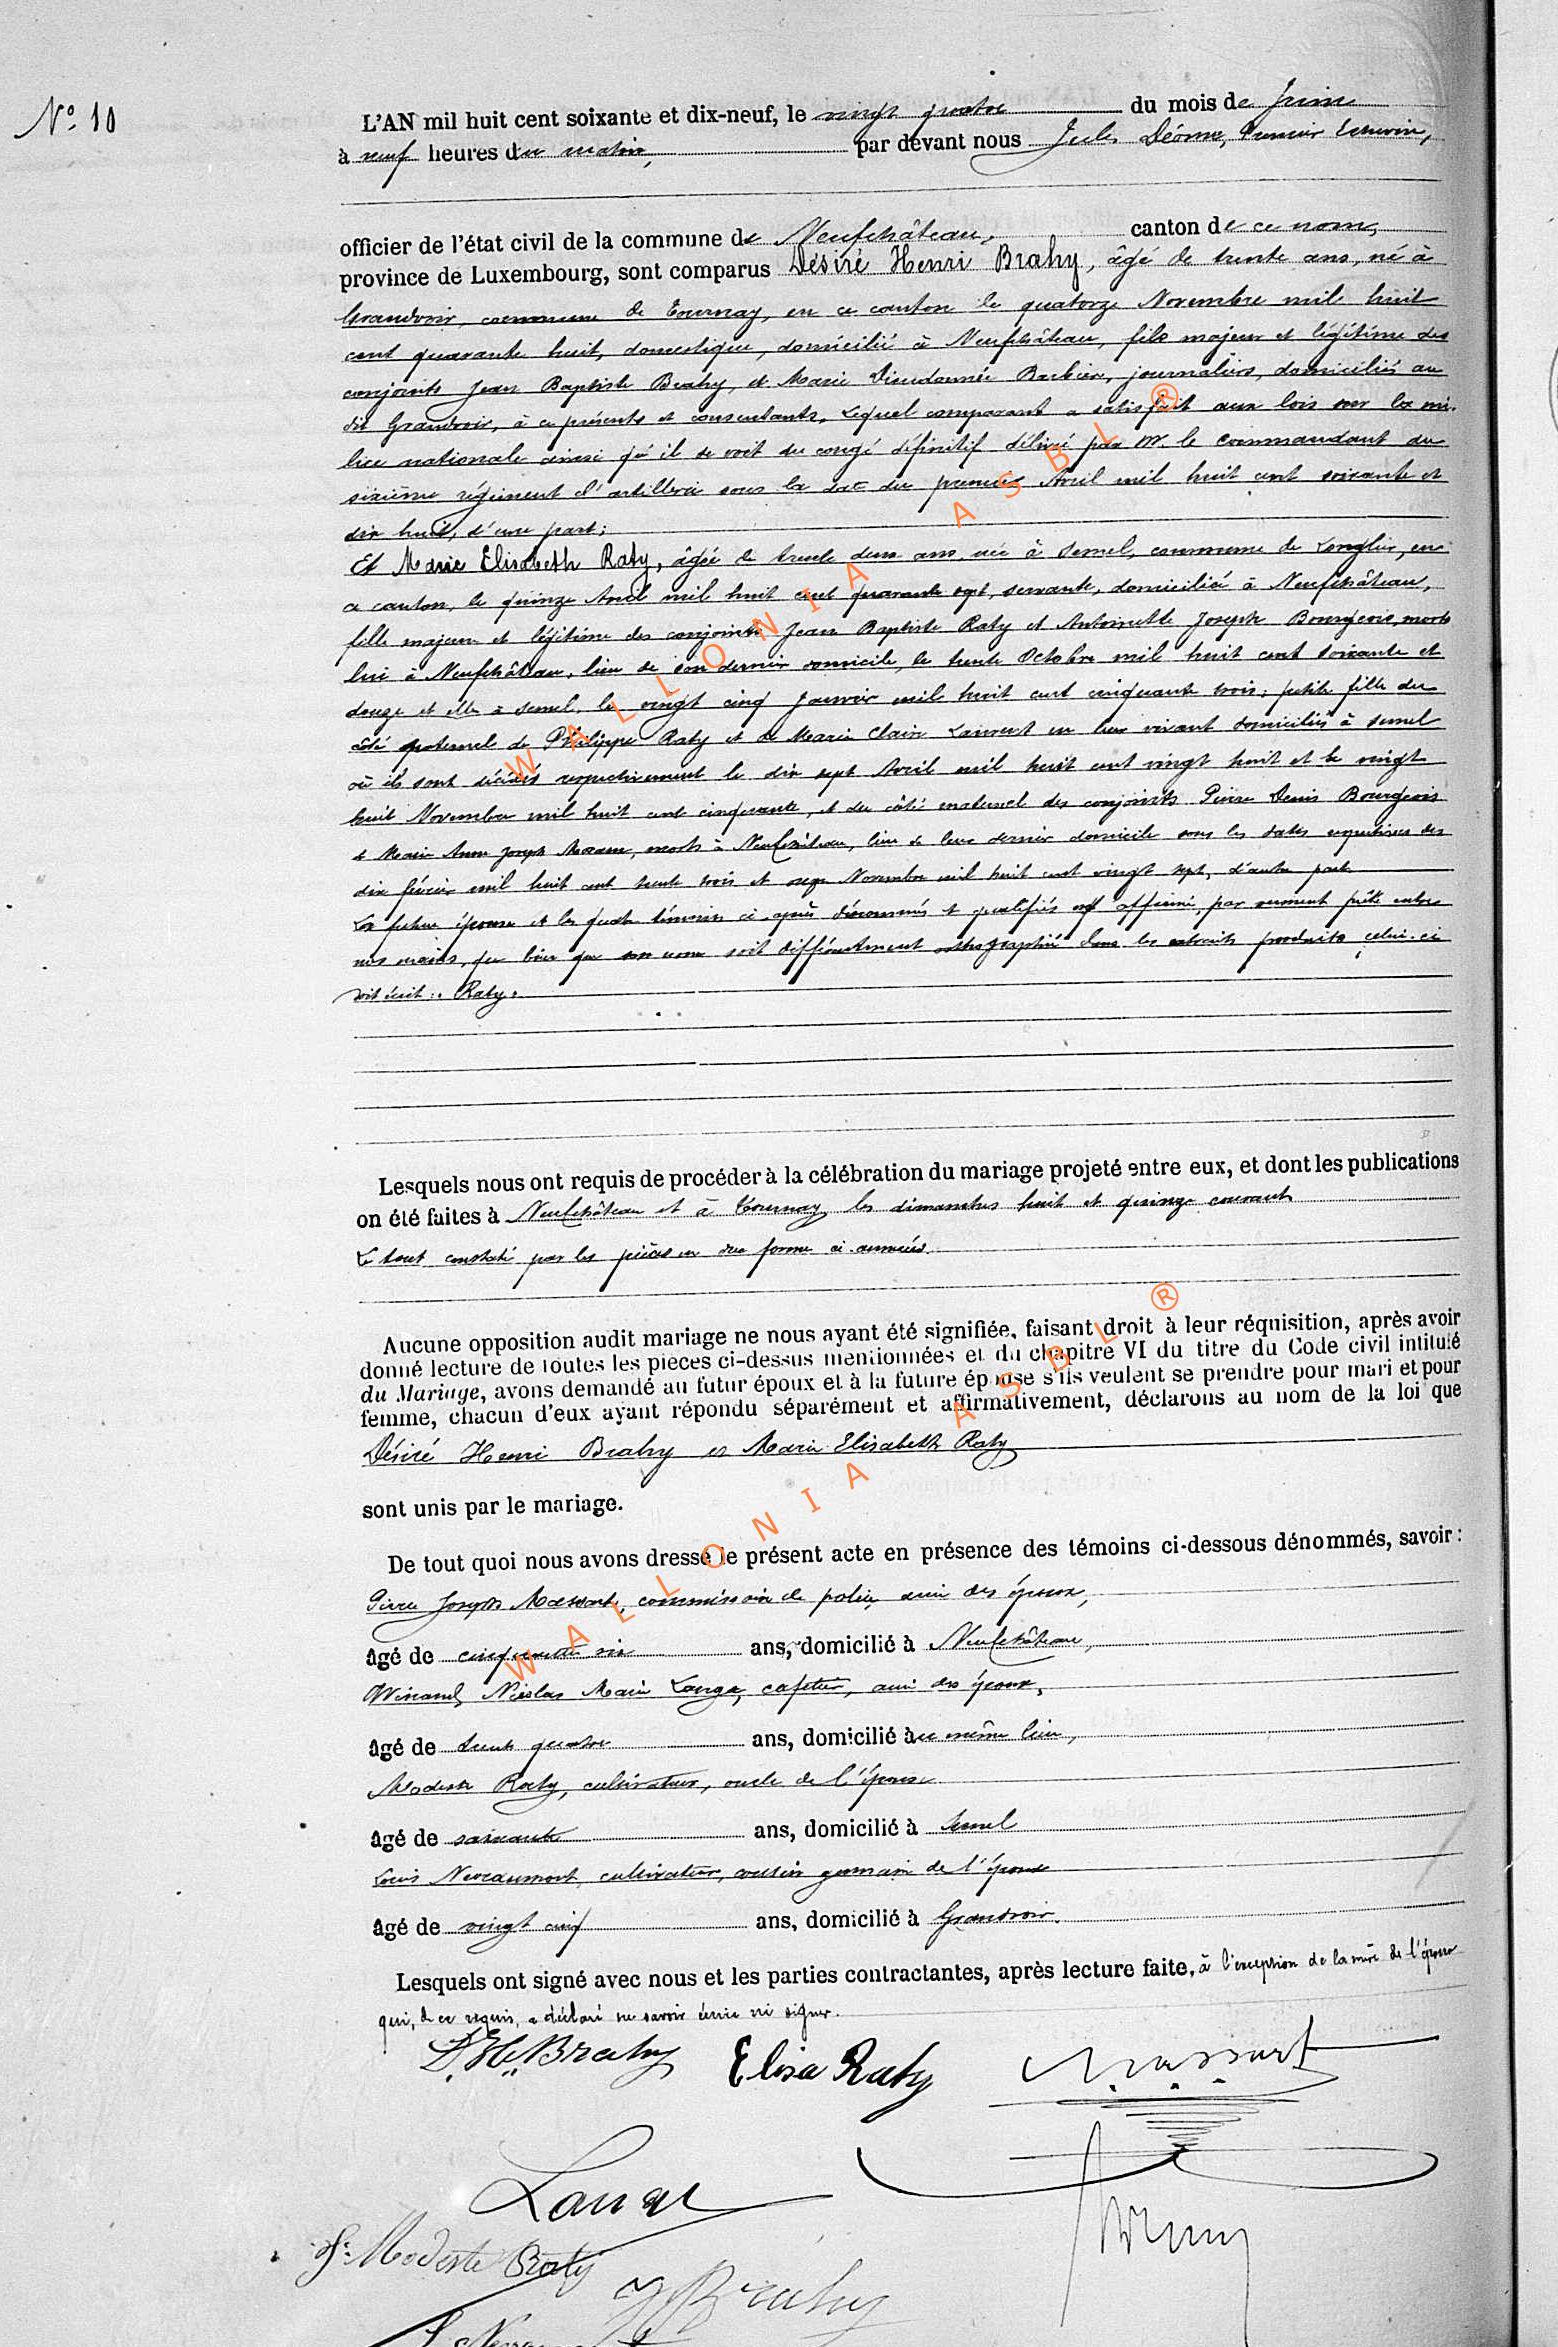 N° 10
L'AN mil huit cent soixante et dix-neuf, le vingt quatre du mois de Juin
à neuf heures du matin, par devant nous Jules Déome, Premier Echevin,
officier de l'état civil de la commune de Neufchâteau, canton de ce nom,
province de Luxembourg, sont comparus Désiré Henri Brahy, âgé de trente ans, né à
Grandvoir, commune de Tournay, en ce canton le quatorze Novembre mil huit
cent quarante huit, domestique, domicilié à Neufchâteau, fils majeur et légitime des
conjoints Jean Baptiste Brahy, et Marie Dieudonnée Barbier, journaliers, domiciliés au
dit Grandvoir, à ce présents et consentants, Lequel comparant a satisfait aux lois sur la mi-
lice nationale ainsi qu'il se voit du congé définitif délivré par Mr. le commandant du
sixième régiment d'artillerie sous la date du premier Avril mil huit cent soixante et
dix huit, d'une part;
Et Marie Elisabeth Raty, âgée de trente deux ans, née à Semel, commune de Longlier, en
ce canton, le quinze Avril mil huit cent quarante sept, servante, domiciliée à Neufchâteau,
fille majeure et légitime des conjoints Jean Baptiste Raty et Antoinette Joseph Bourgeois, morts
lui à Neufchâteau, lieu de son dernier domicile, le trente Octobre mil huit cent soixante et
douze et elle à Semel, le vingt cinq Janvier mil huit cent cinquante trois; petite fille du
côté paternel de Philippe Raty et de Marie Claire Laurent en leur vivant domiciliés à Semel
où ils sont décédés respectivement le dix sept Avril mil huit cent vingt huit et le vingt
huit Novembre mil huit cent cinquante, et du côté maternel des conjoints Pierre Denis Bourgeois
et Marie Anne Joseph, morts à Neufchâteau, lieu de leur dernier domicile sous les dates respectives des
dix février mil huit cent trente trois et onze Novembre mil huit cent vingt sept, d'autre part.
La future épouse et les quatre témoins ci-après dénommés et qualifiés ont affirmé, par serment prêté entre
nos mains, que bien que son nom soit différemment orthographié dans les extraits produits, celui-ci
soit écrit: "Raty".
Lesquels nous ont requis de procéder à la célébration du mariage projeté entre eux, et dont les publications
on été faites à Neufchâteau et à Tournay les dimanches huit et quinze courant
Le tout constaté par les pièces en due forme ci-annexées.
Aucune opposition audit mariage ne nous ayant été signifiée, faisant droit à leur réquisition, après avoir
donné lecture de toutes les pièces ci-dessus mentionnées et du chapitre VI du titre du Code civil intitulé
du Mariage, avons demandé au futur époux et à la future épouse s'ils veulent se prendre pour mari et pour
femme, chacun d'eux ayant répondu séparément et affirmativement, déclarons au nom de la loi que
Désiré Henri Brahy et Marie Elisabeth Raty
sont unis par le mariage.
De tout quoi nous avons dressé le présent acte en présence des témoins ci-dessous dénommés, savoir:
Pierre Joseph Massart, commissaire de police, ami des époux,
âgé de cinquante six ans, domicilié à Neufchâteau,
Winand Nicolas Marie Lange, cafetier, ami des époux,
âgé de trente quatre ans, domicilié au même lieu,
Modeste Raty, cultivateur, oncle de l'épouse
âgé de soixante ans, domicilié à Semel
Louis Nercaumont, cultivateur, cousin germain de l'épouse
âgé de vingt cinq ans, domicilié à Grandvoir.
Lesquels ont signé avec nous et les parties contractantes, après lecture faite, à l'exception de la mère de l'époux
qui, de ce requis, a déclaré ne savoir écrire ni signer.
D. H. Brahy Elisa Raty Massart
Modeste Raty
Brahy
WALLONIA ASBL ®
WALLONIA ASBL ®